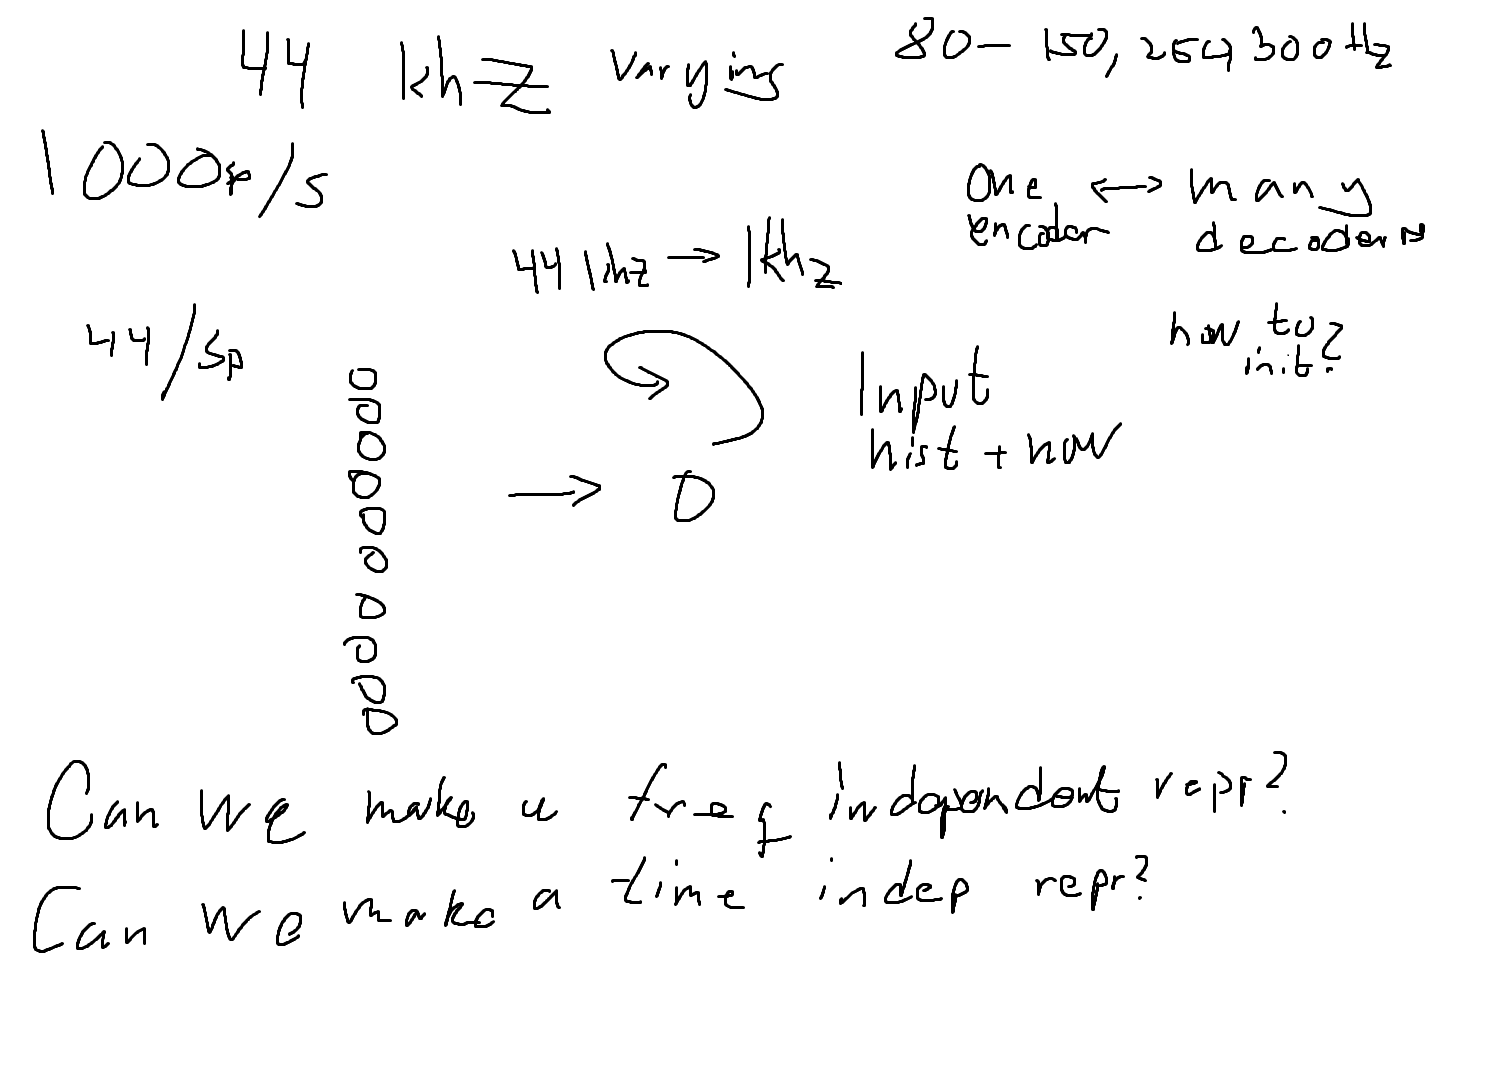 44 khz varying
80 - 150, 250, 300 Hz
1000sp/s
One ↔ many
encoder decoders
44 khz → 1khz
how to
init?
44/sp
Input
hist + now
→ O
Can we make a freq independent repr?
Can we make a time indep repr?